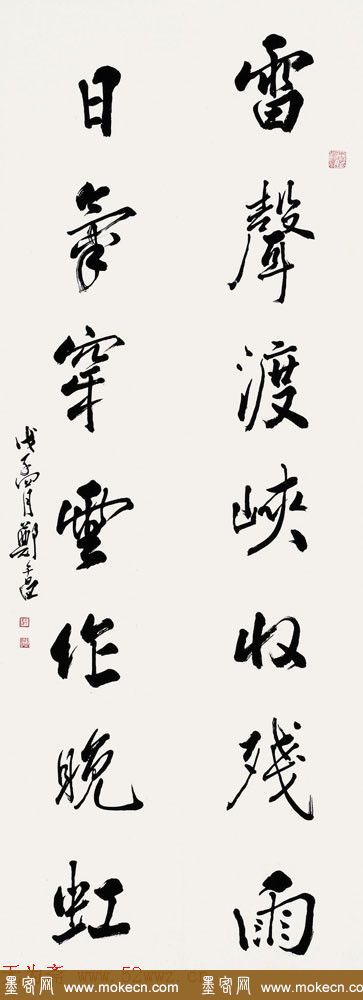 雷聲渡峽收残雨
日氣穿雲作晚虹
墨客网 www.mokecn.com 墨客网 www.mokecn.com